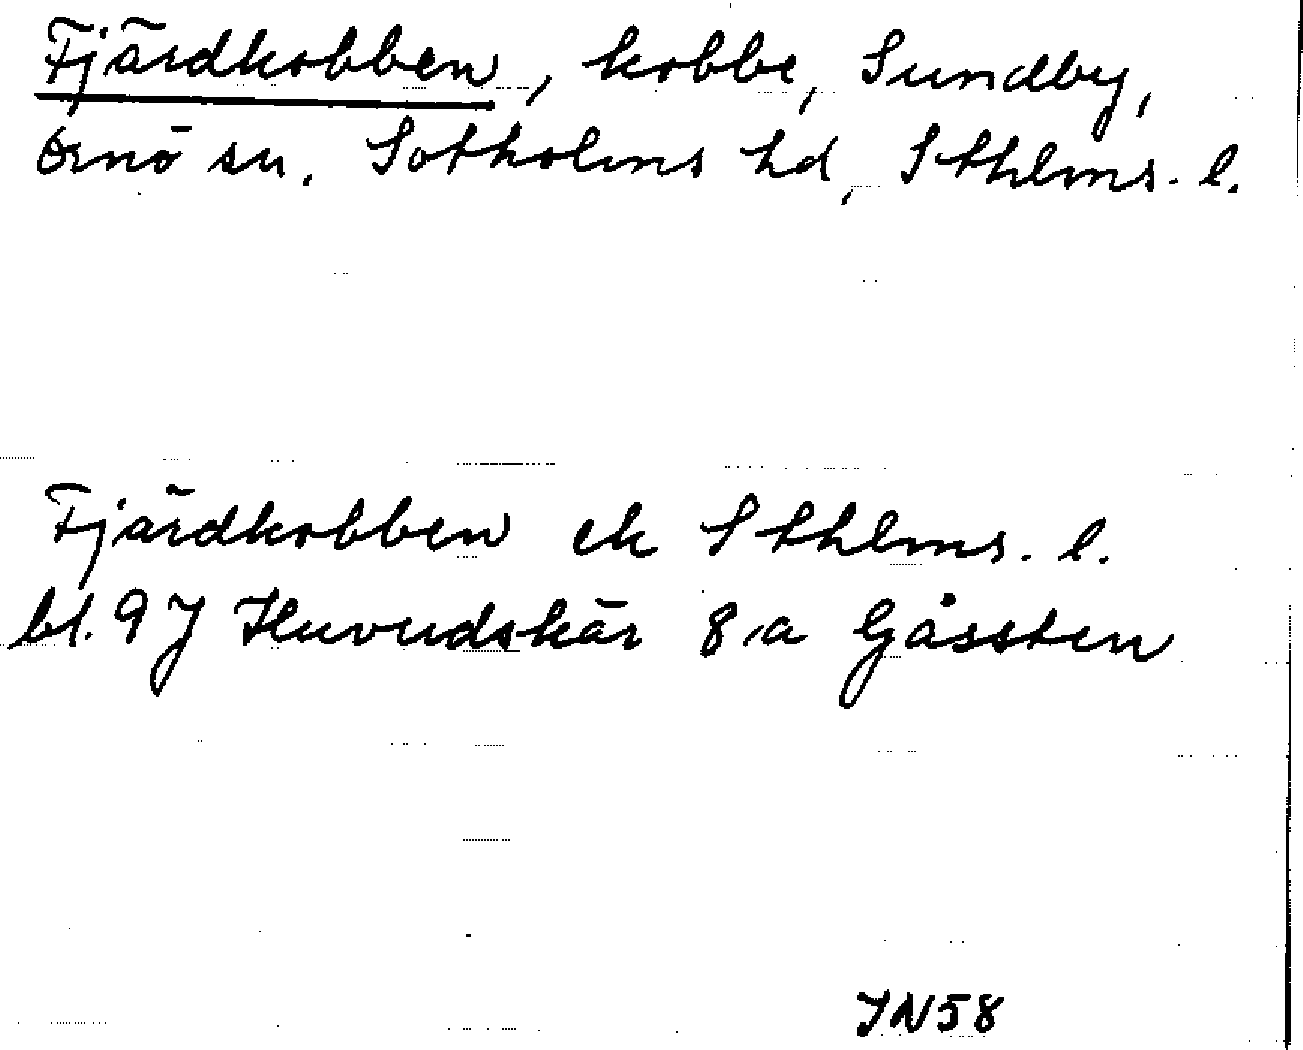 Fjärdkobben, kobbe, Sundby,
Ornö sn. Sotholms hd, Sthlms. l.
Fjärdkobben ek Sthlms. l.
bl. 9J Huvudskär 8,a Gåssten
JN58